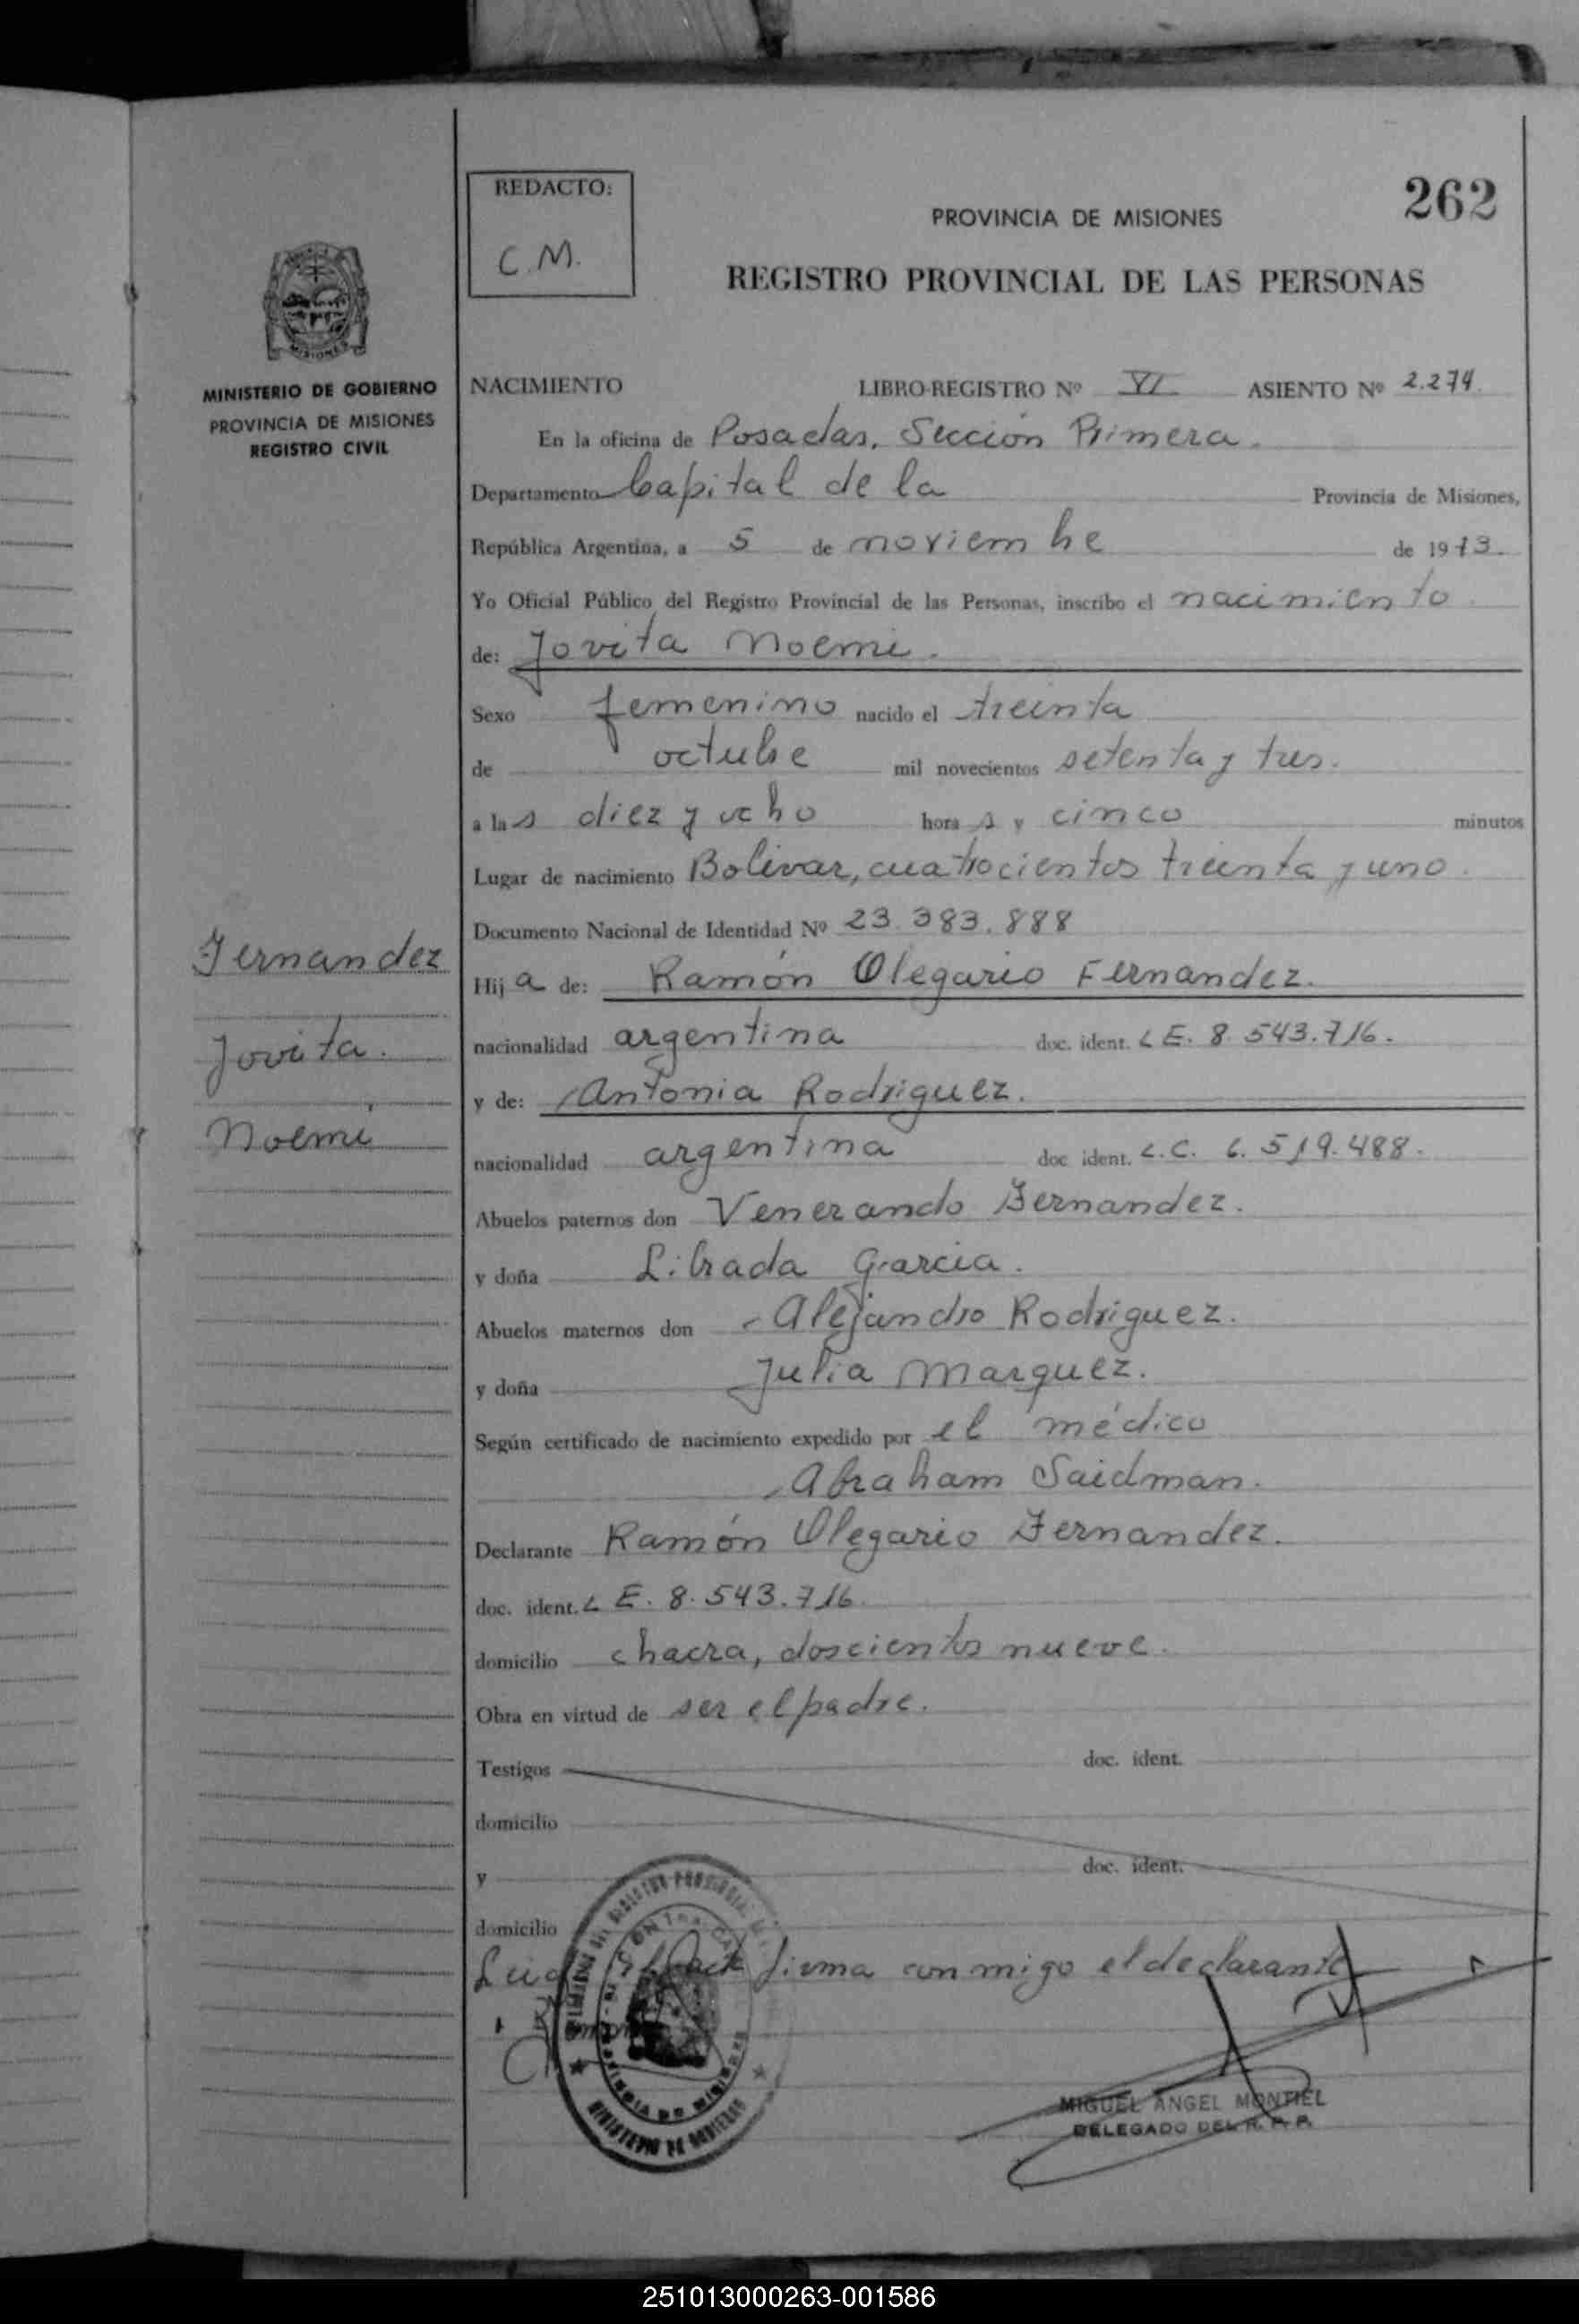 REDACTO:
C.M.
262
PROVINCIA DE MISIONES
REGISTRO PROVINCIAL DE LAS PERSONAS
MISIONES
MINISTERIO DE GOBIERNO
PROVINCIA DE MISIONES
REGISTRO CIVIL
NACIMIENTO LIBRO-REGISTRO Nº VI ASIENTO Nº 2.274.
En la oficina de Posadas, Sección Primera.
Departamento Capital de la Provincia de Misiones,
República Argentina, a 5 de noviembre de 1973.
Yo Oficial Público del Registro Provincial de las Personas, inscribo el nacimiento.
de: Jovita Noemi.
Sexo femenino nacido el treinta
de octubre mil novecientos setenta y tres.
a las diez y ocho horas y cinco minutos
Lugar de nacimiento Bolivar, cuatrocientos treinta y uno.
Documento Nacional de Identidad Nº 23.383.888
Fernandez
Jovita.
Noemi
Hija de: Ramón Olegario Fernandez.
nacionalidad argentina doc. ident. L E. 8.543.716.
y de: Antonia Rodriguez.
nacionalidad argentina doc ident. L.C. 6.519.488.
Abuelos paternos don Venerando Fernandez.
y doña Librada Garcia.
Abuelos maternos don Alejandro Rodriguez.
y doña Julia Marquez.
Según certificado de nacimiento expedido por el médico
Abraham Saidman.
Declarante Ramón Olegario Fernandez.
doc. ident. L E. 8.543.716.
domicilio chacra, doscientos nueve.
Obra en virtud de ser el padre.
Testigos doc. ident.
domicilio
y doc. ident.
domicilio
firma conmigo el declarante
MINISTERIO DE GOBIERNO
MIGUEL ANGEL MONTIEL
DELEGADO DEL R. P. P.
251013000263-001586